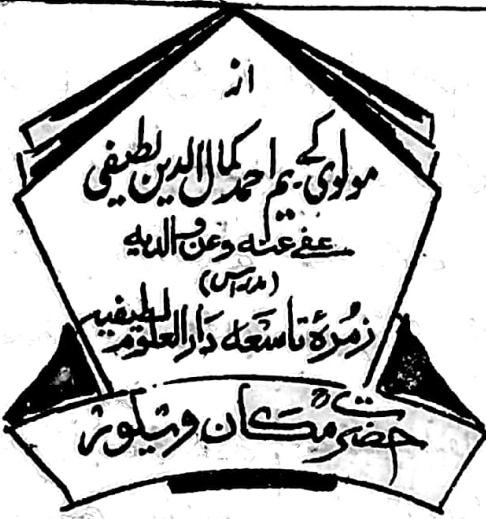 از
مولوی کے یم احمد کمال الدین لطیفی
عفی عنہ وعن والدیہ
(مدراس)
زمرۂ تاسعہ دار العلوم لطیفیہ
حضرت مکان ویلور